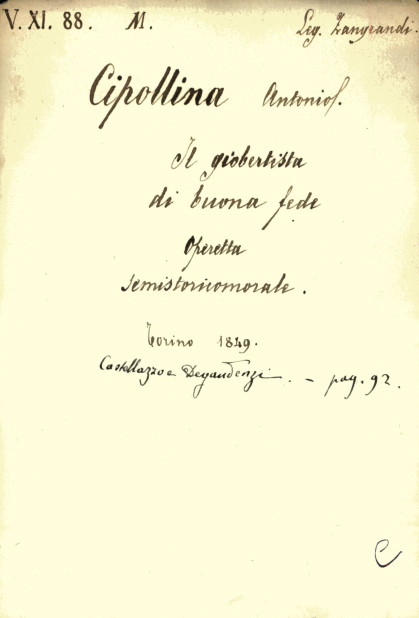 V. XI. 88. M. Leg. Zangrandi.
Cipollina Antonio.
Il giobertista
di buona fede
Operetta
semistoricomorale.
Torino 1849.
Castellazzo e Degaudenzi. - pag. 92.
C